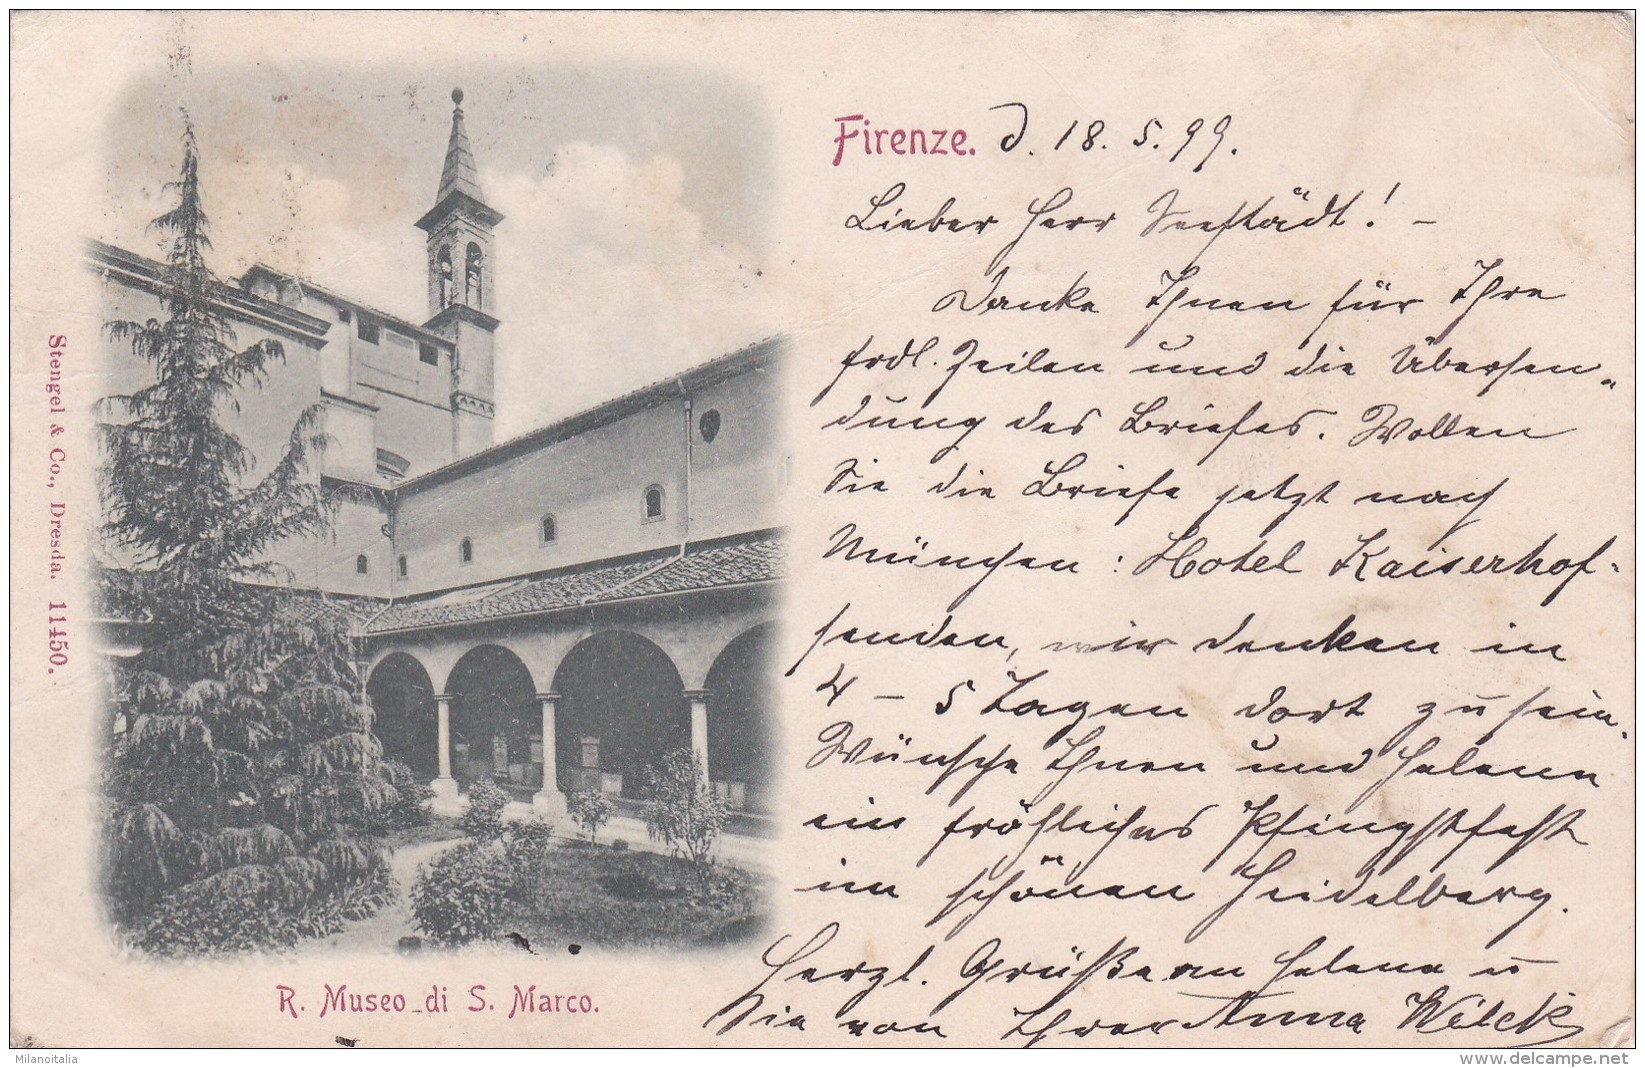 Stengel & Co., Dresda. 11450.
R. Museo di S. Marco.
Firenze. d. 18. 5. 99.
Lieber Herr Seestädt! –
Danke Ihnen für Ihre
frdl. Zeilen und die Übersen-
dung des Briefes. Wollen
Sie die Briefe jetzt nach
München: Hotel Kaiserhof.
senden, wir denken in
4 – 5 Tagen dort zu sein.
Wünsche Ihnen und Helene
ein fröhliches Pfingstfest
im schönen Heidelberg.
Herzl. Grüße an Helene u
Sie von Ihrer Anna Wilck
Milanoitalia
delcampe.net